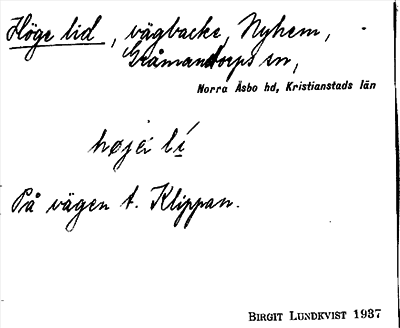 Höge lid, vägbacke, Nyhem,
Gråmanstorps sn,
Norra Åsbo hd, Kristianstads län
højei lí
På vägen t. Klippan.
BIRGIT LUNDKVIST 1937